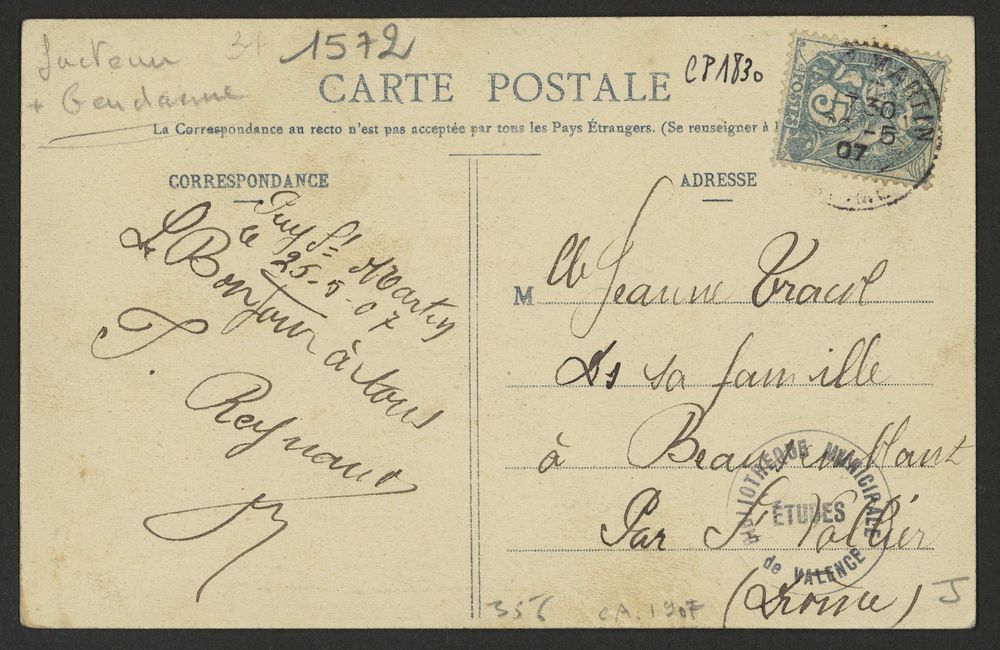 facteur 31 1572
+ Gendarme
CARTE POSTALE
CP1830
La Correspondance au recto n'est pas acceptée par tous les Pays Étrangers. (Se renseigner à l
CORRESPONDANCE
Puy St Martin
le 25-5-07
Le Bonjour à tous
J. Reynaud
ADRESSE
5
POSTES
MARTIN
7 30
26 -5
07
M lle Jeanne Tracol
Ds sa famille
à Beausemblant
Par St Vallier
(Drôme)
BIBLIOTHÈQUE MUNICIPALE
ÉTUDES
de VALENCE
356 CA. 1907 J